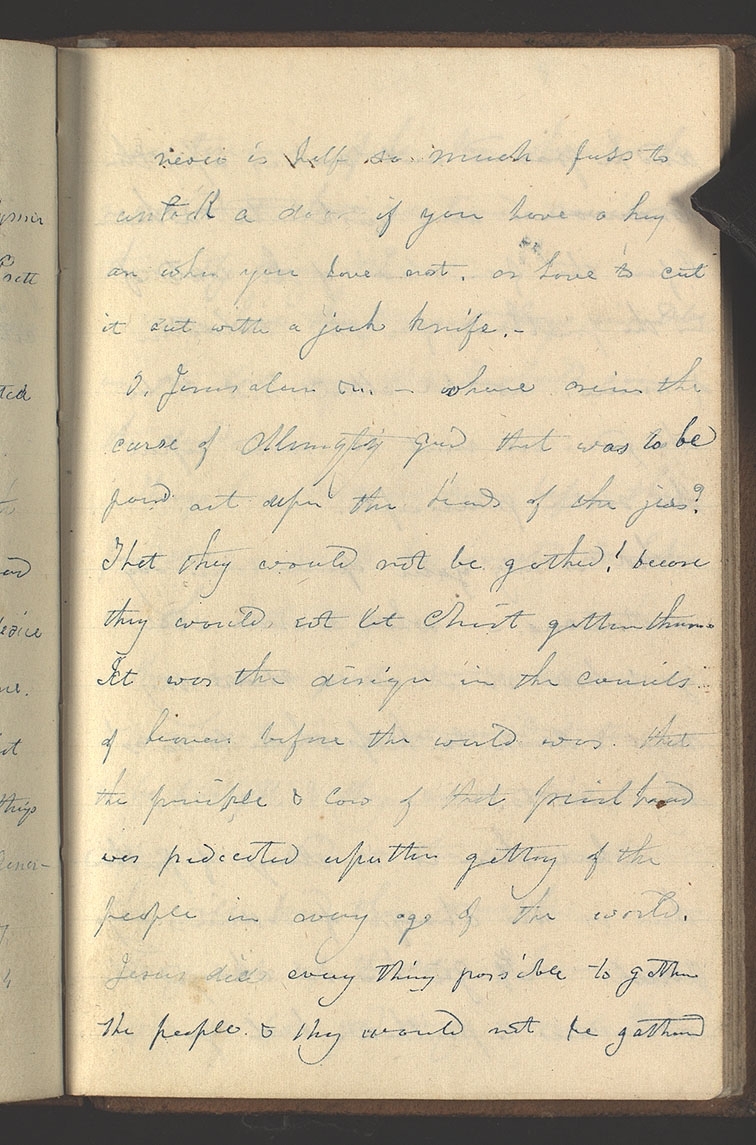 never is half so much fuss to
untock a door if you have a key
as when you have not. or have to cut
it out with a jack knife.-
O. Jerusalem &c. - where arein the
curse of Almungty God that was to be
pourd out upon the heads of the jews?
That they would not be gathed! becose
they would not let Christ gather them.
It was the design in the councils
of heaven before the world was. that
the principle & law of that priest hood
was predicated upon the gathering of the
people in every age of the world.
Jesus did every thing possible to gather
the people. & they would not be gathered
ysmir
ted
and
ne.
things